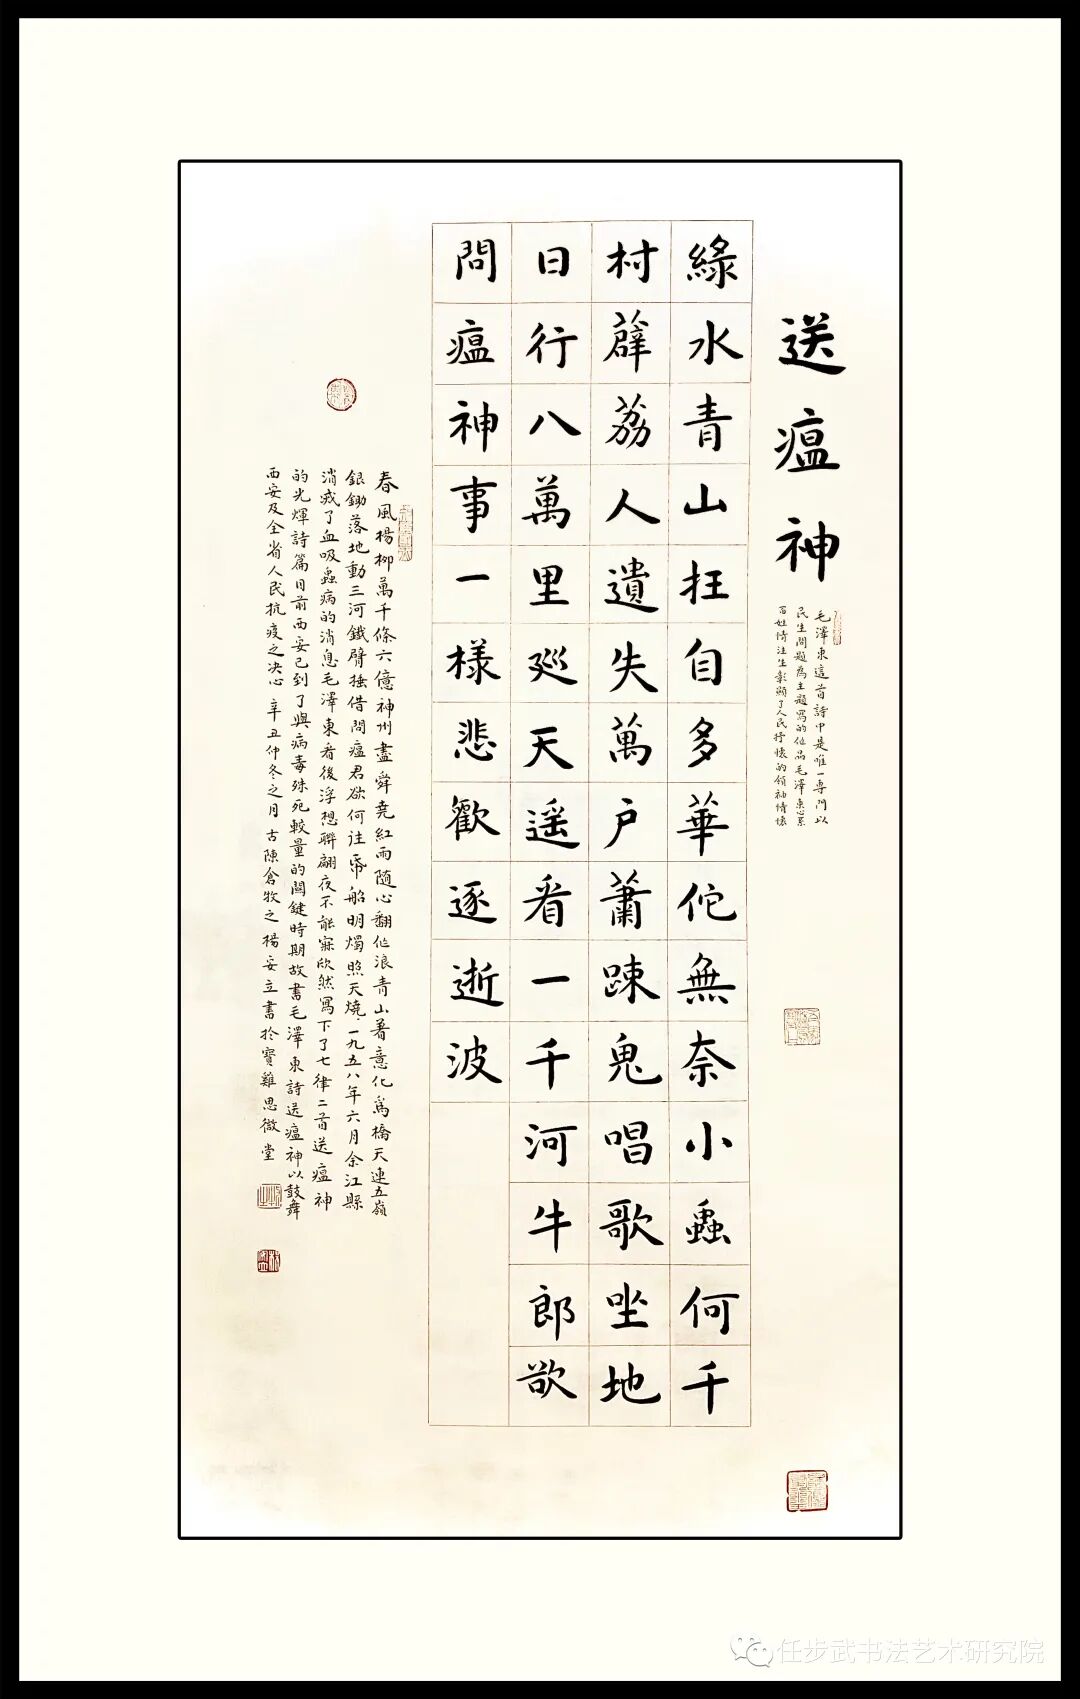 送瘟神
毛澤東這首詩中是唯一専門以
民生問題為主題寫的作品毛澤東心累
百姓情注生彰顯了人民抒懷的領袖情懷
綠水青山抂自多華佗無奈小蟲何千
村薜荔人遺失萬户蕭踈鬼唱歌坐地
日行八萬里廵天遥看一千河牛郎欲
問瘟神事一樣悲歡逐逝波
春風楊柳萬千條六億神州盡舜尭紅雨随心翻作浪青山著意化為橋天連五嶺
銀鋤落地動三河鐵臂揺借問瘟君欲何往帋船明燭照天燒一九五八年六月余江縣
消滅了血吸蟲病的消息毛澤東看後浮想聯翩夜不能寐欣然寫下了七律二首送瘟神
的光煇詩篇目前西安已到了與病毒殊死較量的闗鍵時期故書毛澤東詩送瘟神以鼓舞
西安及全省人民抗疫之决心 辛丑仲冬之月古陳倉牧之楊安立書於寶雞思微堂
任步武书法艺术研究院